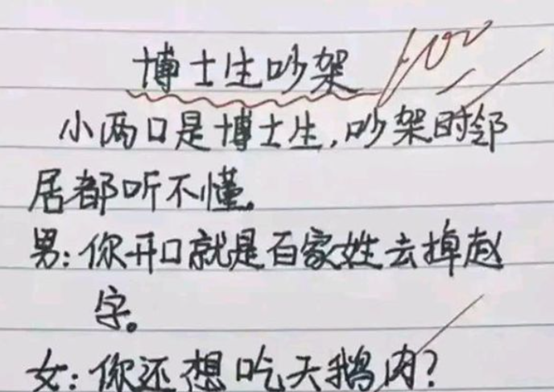 博士生吵架
100
小两口是博士生,吵架时邻
居都听不懂。
男:你开口就是百家姓去掉赵
字。
女:你还想吃天鹅肉?